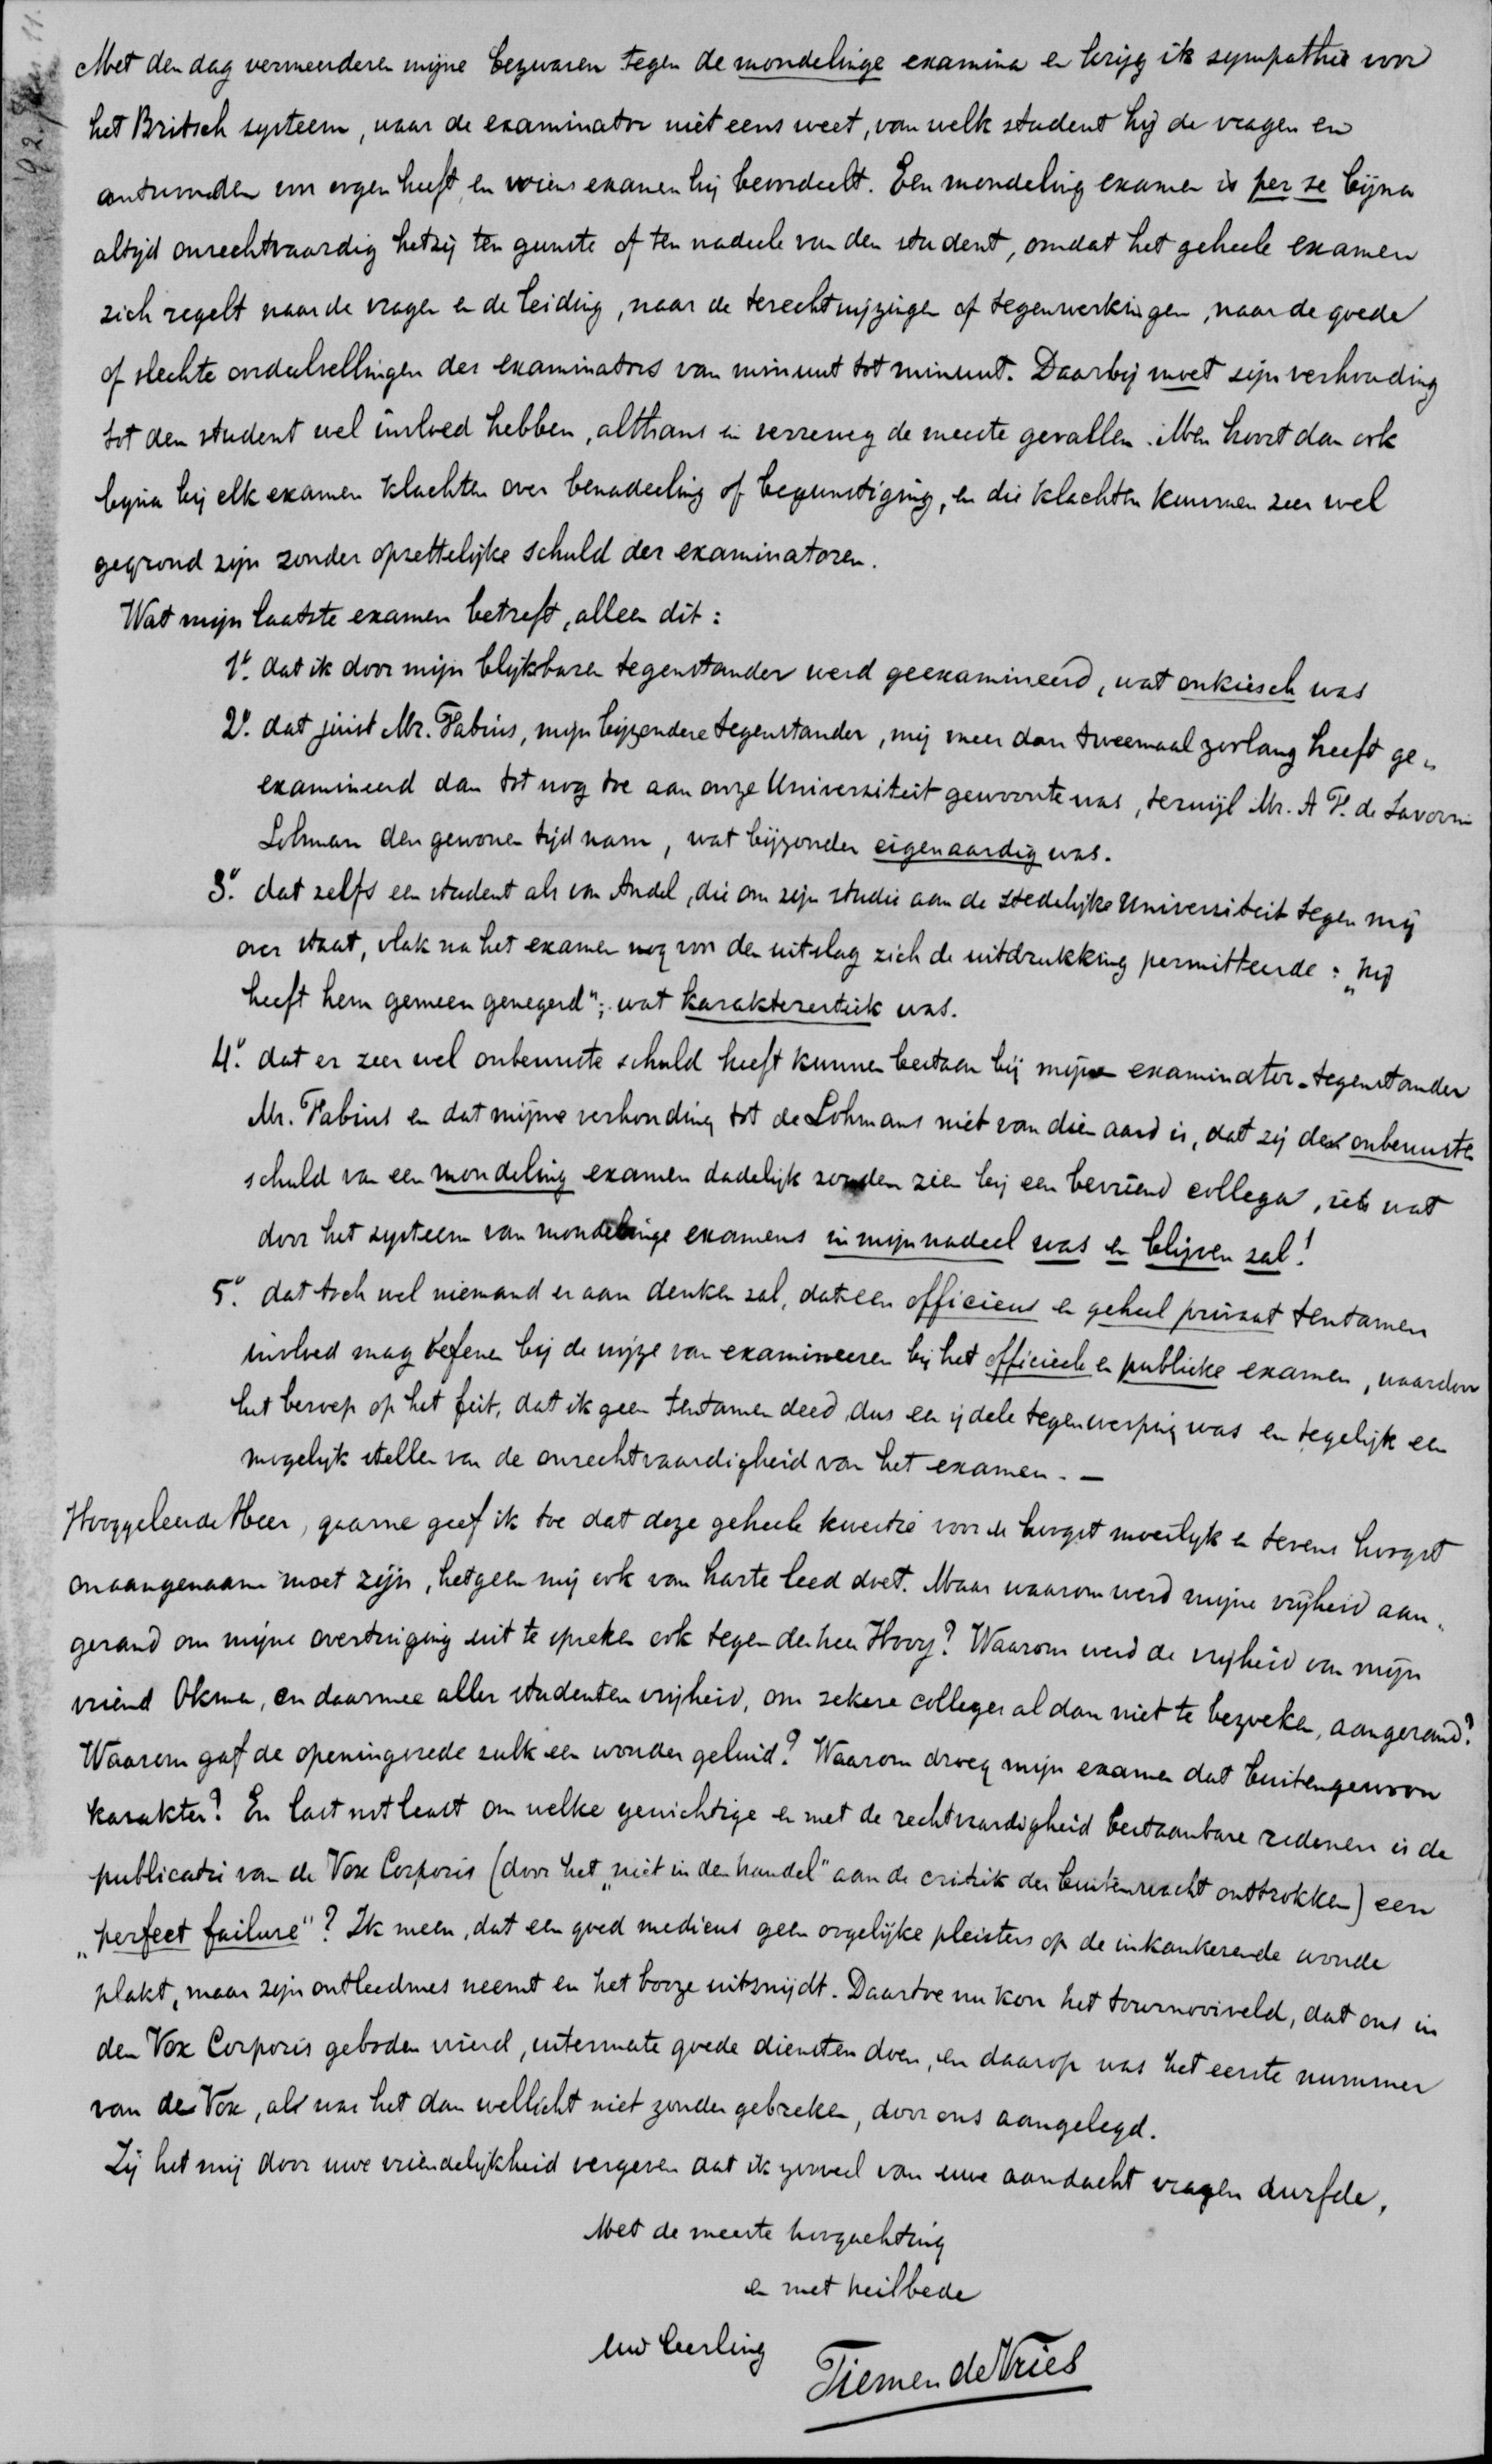 Met den dag vermeerderen mijne bezwaren tegen de mondelinge examina en krijg ik sympathie voor
het Britsch systeem, waar de examinator niet eens weet, van welk student hij de vragen en
antwoorden om ogen heeft en wiens examen hij beoordeelt. Een mondeling examen is per se bijna
altijd onrechtvaardig hetzij ten gunste of ten nadeele van den student, omdat het geheele examen
zich regelt naar de vragen en de leiding, naar de terechtwijzingen of tegenwerkingen, naar de goede
of slechte onderstellingen des examinators van minuut tot minuut. Daarbij moet zijn verhouding
tot den student wel invloed hebben, althans in verreweg de meeste gevallen. Men hoort dan ook
bijna bij elk examen klachten over benadeeling of begunstiging, en die klachten kunnen zeer wel
gegrond zijn zonder opzettelijke schuld der examinatoren.
Wat mijn laatste examen betreft, alleen dit:
1º. dat ik door mijn blijkbaren tegenstander werd geexamineerd, wat onkiesch was
2º. dat juist Mr. Fabius, mijn bijzondere tegenstander, mij meer dan tweemaal zoolang heeft ge-
examineerd dan tot nog toe aan onze Universiteit gewoonte was, terwijl Mr. A F. de Savornin
Lohman den gewonen tijd nam, wat bijzonder eigenaardig was.
3º. dat zelfs een student als van Andel, die om zijn studie aan de stedelijke Universiteit tegen mij
over staat, vlak na het examen nog voor den uitslag zich de uitdrukking permitteerde: „hij
heeft hem gemeen genegerd"; wat karakteristiek was.
4º. dat er zeer wel onbewuste schuld heeft kunnen bestaan bij mijne examinator-tegenstander
Mr. Fabius en dat mijne verhouding tot de Lohmans niet van dien aard is, dat zij de onbewuste
schuld van een mondeling examen dadelijk zouden zien bij een bevriend collega, iets wat
door het systeem van mondelinge examens in mijn nadeel was en blijven zal!
5º. dat toch wel niemand er aan denken zal, dat een officieus en geheel privaat tentamen
invloed mag oefenen bij de wijze van examineeren bij het officieele en publieke examen, waardoor
het beroep op het feit, dat ik geen tentamen deed, dus een ijdele tegenwerping was en tegelijk een
mogelijk stellen van de onrechtvaardigheid van het examen. —
Hooggeleerde Heer, gaarne geef ik toe dat deze geheele kwestie voor u hoogst moeilijk en tevens hoogst
onaangenaam moet zijn, hetgeen mij ook van harte leed doet. Maar waarom werd mijne vrijheid aan-
gerand om mijne overtuiging uit te spreken ook tegen den heer Hovy? Waarom werd de vrijheid van mijn
vriend Okma, en daarmee aller studenten vrijheid, om zekere colleges al dan niet te bezoeken, aangerand?
Waarom gaf de openingsrede zulk een wonder geluid? Waarom droeg mijn examen dat buitengewoon
karakter? En last not least om welke gewichtige en met de rechtvaardigheid bestaanbare redenen is de
publicatie van de Vox Corporis (door het „niet in den handel" aan de critiek der buitenwacht onttrokken) een
„perfect failure"? Ik meen, dat een goed medicus geen oogelijke pleisters op de inkankerende wonde
plakt, maar zijn ontleedmes neemt en het booze uitsnijdt. Daartoe nu kon het tournooiveld, dat ons in
den Vox Corporis geboden werd, uitermate goede diensten doen, en daarop was het eerste nummer
van de Vox, al was het dan wellicht niet zonder gebreken, door ons aangelegd.
Zij het mij door uwe vriendelijkheid vergeven dat ik zooveel van uwe aandacht vragen durfde,
Met de meeste hoogachting
en met heilbede
Uw leerling
Tiemen de Vries